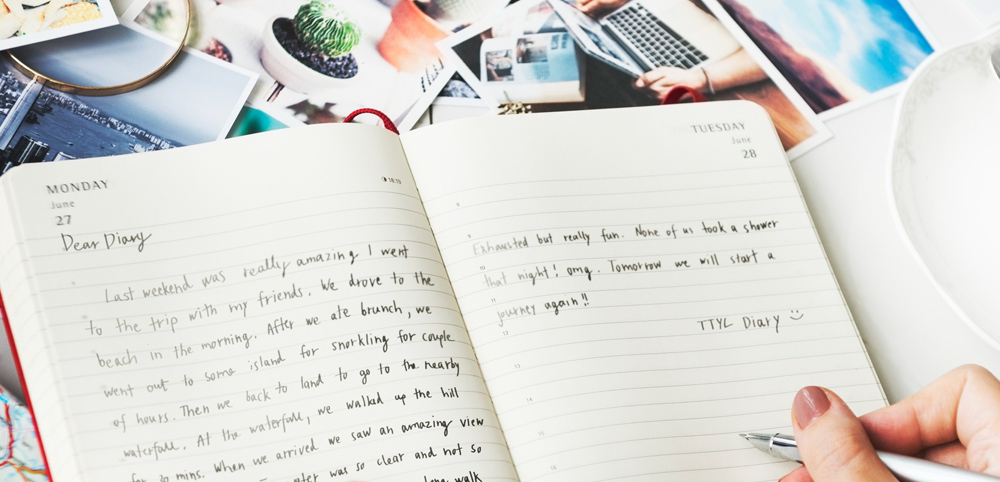 MONDAY
June
27
Dear Diary
Last weekend was really amazing I went
to the trip with my friends. We drove to the
beach in the morning. After we ate brunch, we
went out to some island for snorkling for couple
of hours. Then we back to land to go to the nearby
waterfall. At the waterfall, we walked up the hill
for 30 mins. When we arrived we saw an amazing view
was so clear and not so
long walk
TUESDAY
June
28
Exhausted but really fun. None of us took a shower
that night! omg. Tomorrow we will start a
journey again!!
TTYL Diary